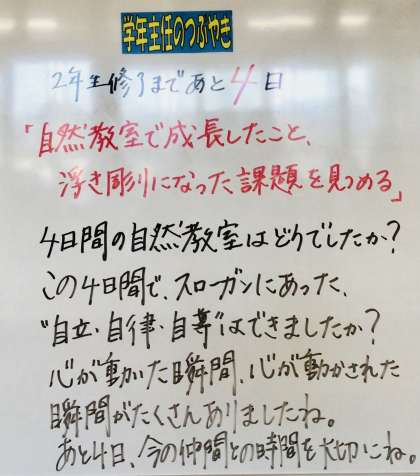 学年主任のつぶやき
2年生修了まであと4日
「自然教室で成長したこと、
浮き彫りになった課題を見つめる」
4日間の自然教室はどうでしたか?
この4日間で、スローガンにあった、
"自立・自律・自尊"はできましたか?
心が動いた瞬間、心が動かされた
瞬間がたくさんありましたね。
あと4日、今の仲間との時間を大切にね